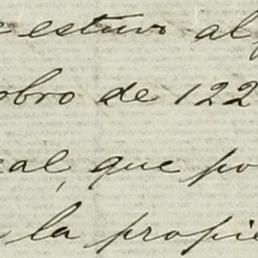 estuvo al
obro de 122
al, que po
la propie